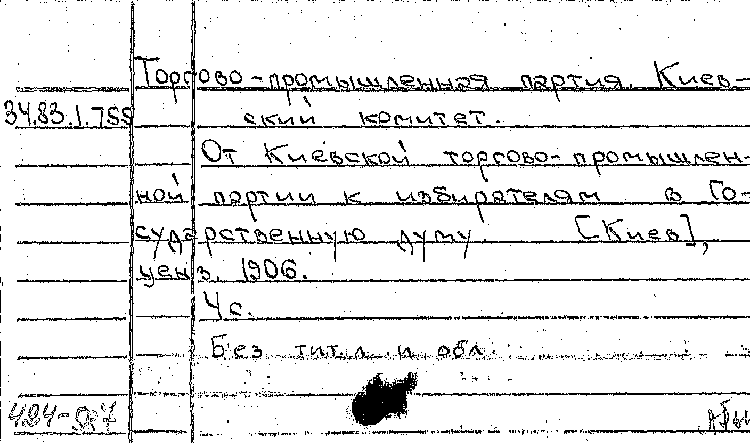 Торгово-промышленная партия. Киев-
34.83.1.755
ский комитет.
От Киевской торгово-промышлен-
ной партии к избирателям в Го-
сударственную думу. [Киев],
ценз. 1906.
4 с.
Без тит. л. и обл.